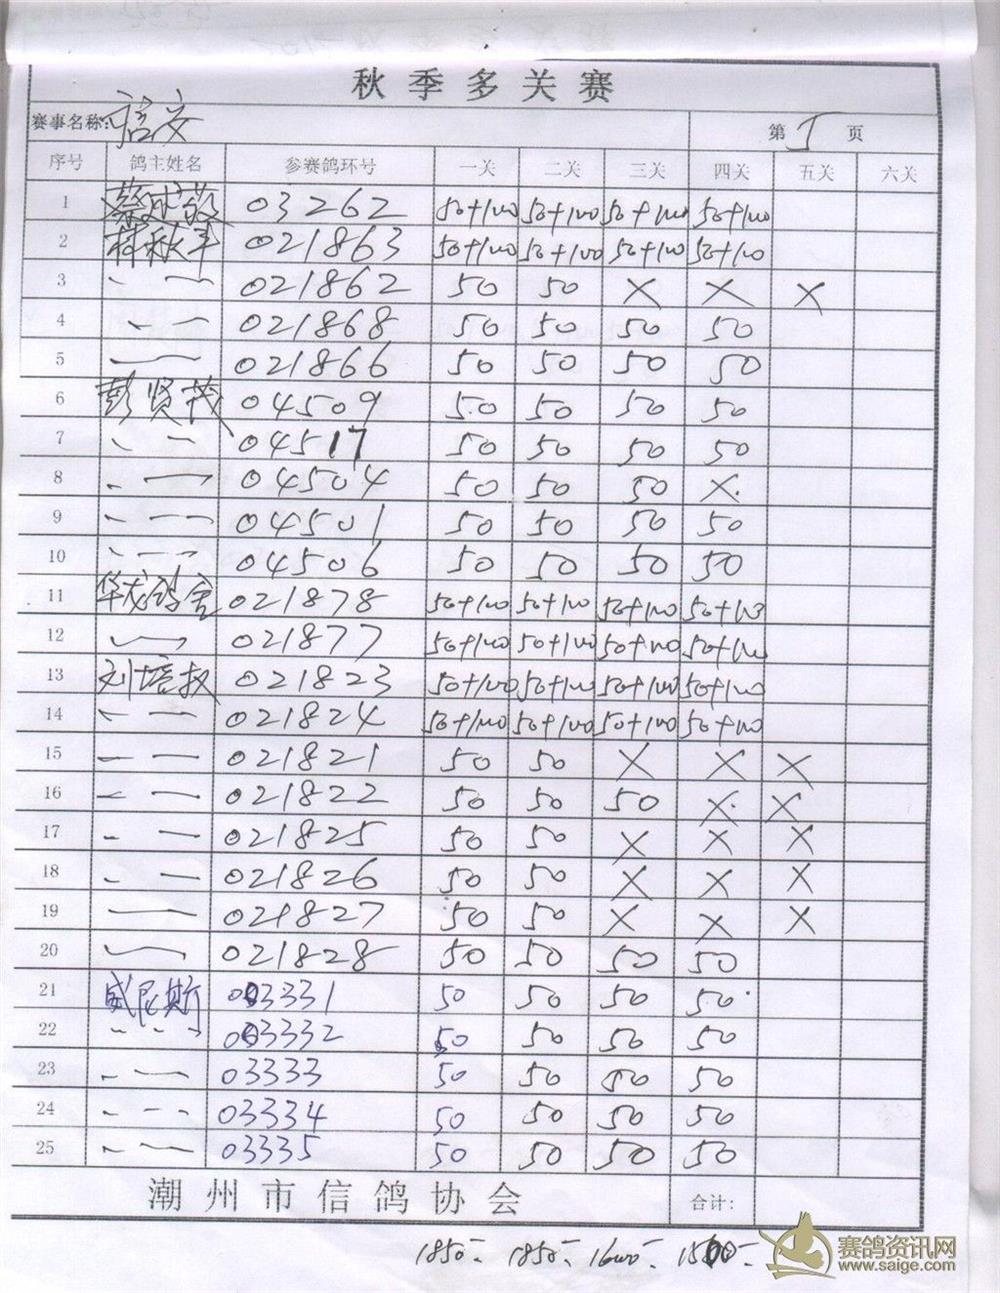 秋季多关赛
赛事名称: 信交 第 1 页
序号 鸽主姓名 参赛鸽环号 一关 二关 三关 四关 五关 六关
1 03262 50+100 50+100 50+100 50+100
2 林秋丰 021863 50+100 50+100 50+100 50+100
3 〃 — 021862 50 50 × × ×
4 〃 — 021868 50 50 50 50
5 — 021866 50 50 50 50
6 彭贤茂 04509 50 50 50 50
7 〃 — 04517 50 50 50 50
8 〃 — 04504 50 50 50 ×
9 〃 — 04501 50 50 50 50
10 〃 — 04506 50 50 50 50
11 华龙鸽舍 021878 50+100 50+100 50+100 50+100
12 〃 — 021877 50+100 50+100 50+100 50+100
13 刘培叔 021823 50+100 50+100 50+100 50+100
14 〃 — 021824 50+100 50+100 50+100 50+100
15 — — 021821 50 50 × × ×
16 〃 — 021822 50 50 50 × ×
17 〃 — 021825 50 50 × × ×
18 〃 — 021826 50 50 × × ×
19 — 021827 50 50 × × ×
20 — 021828 50 50 50 50
21 威尼斯 03331 50 50 50 50
22 〃 〃 〃 03332 50 50 50 50
23 〃 — 03333 50 50 50 50
24 〃 — 03334 50 50 50 50
25 〃 — 03335 50 50 50 50
潮州市信鸽协会 合计:
1850- 1850- 1600- 1500-
赛鸽资讯网
www.saige.com